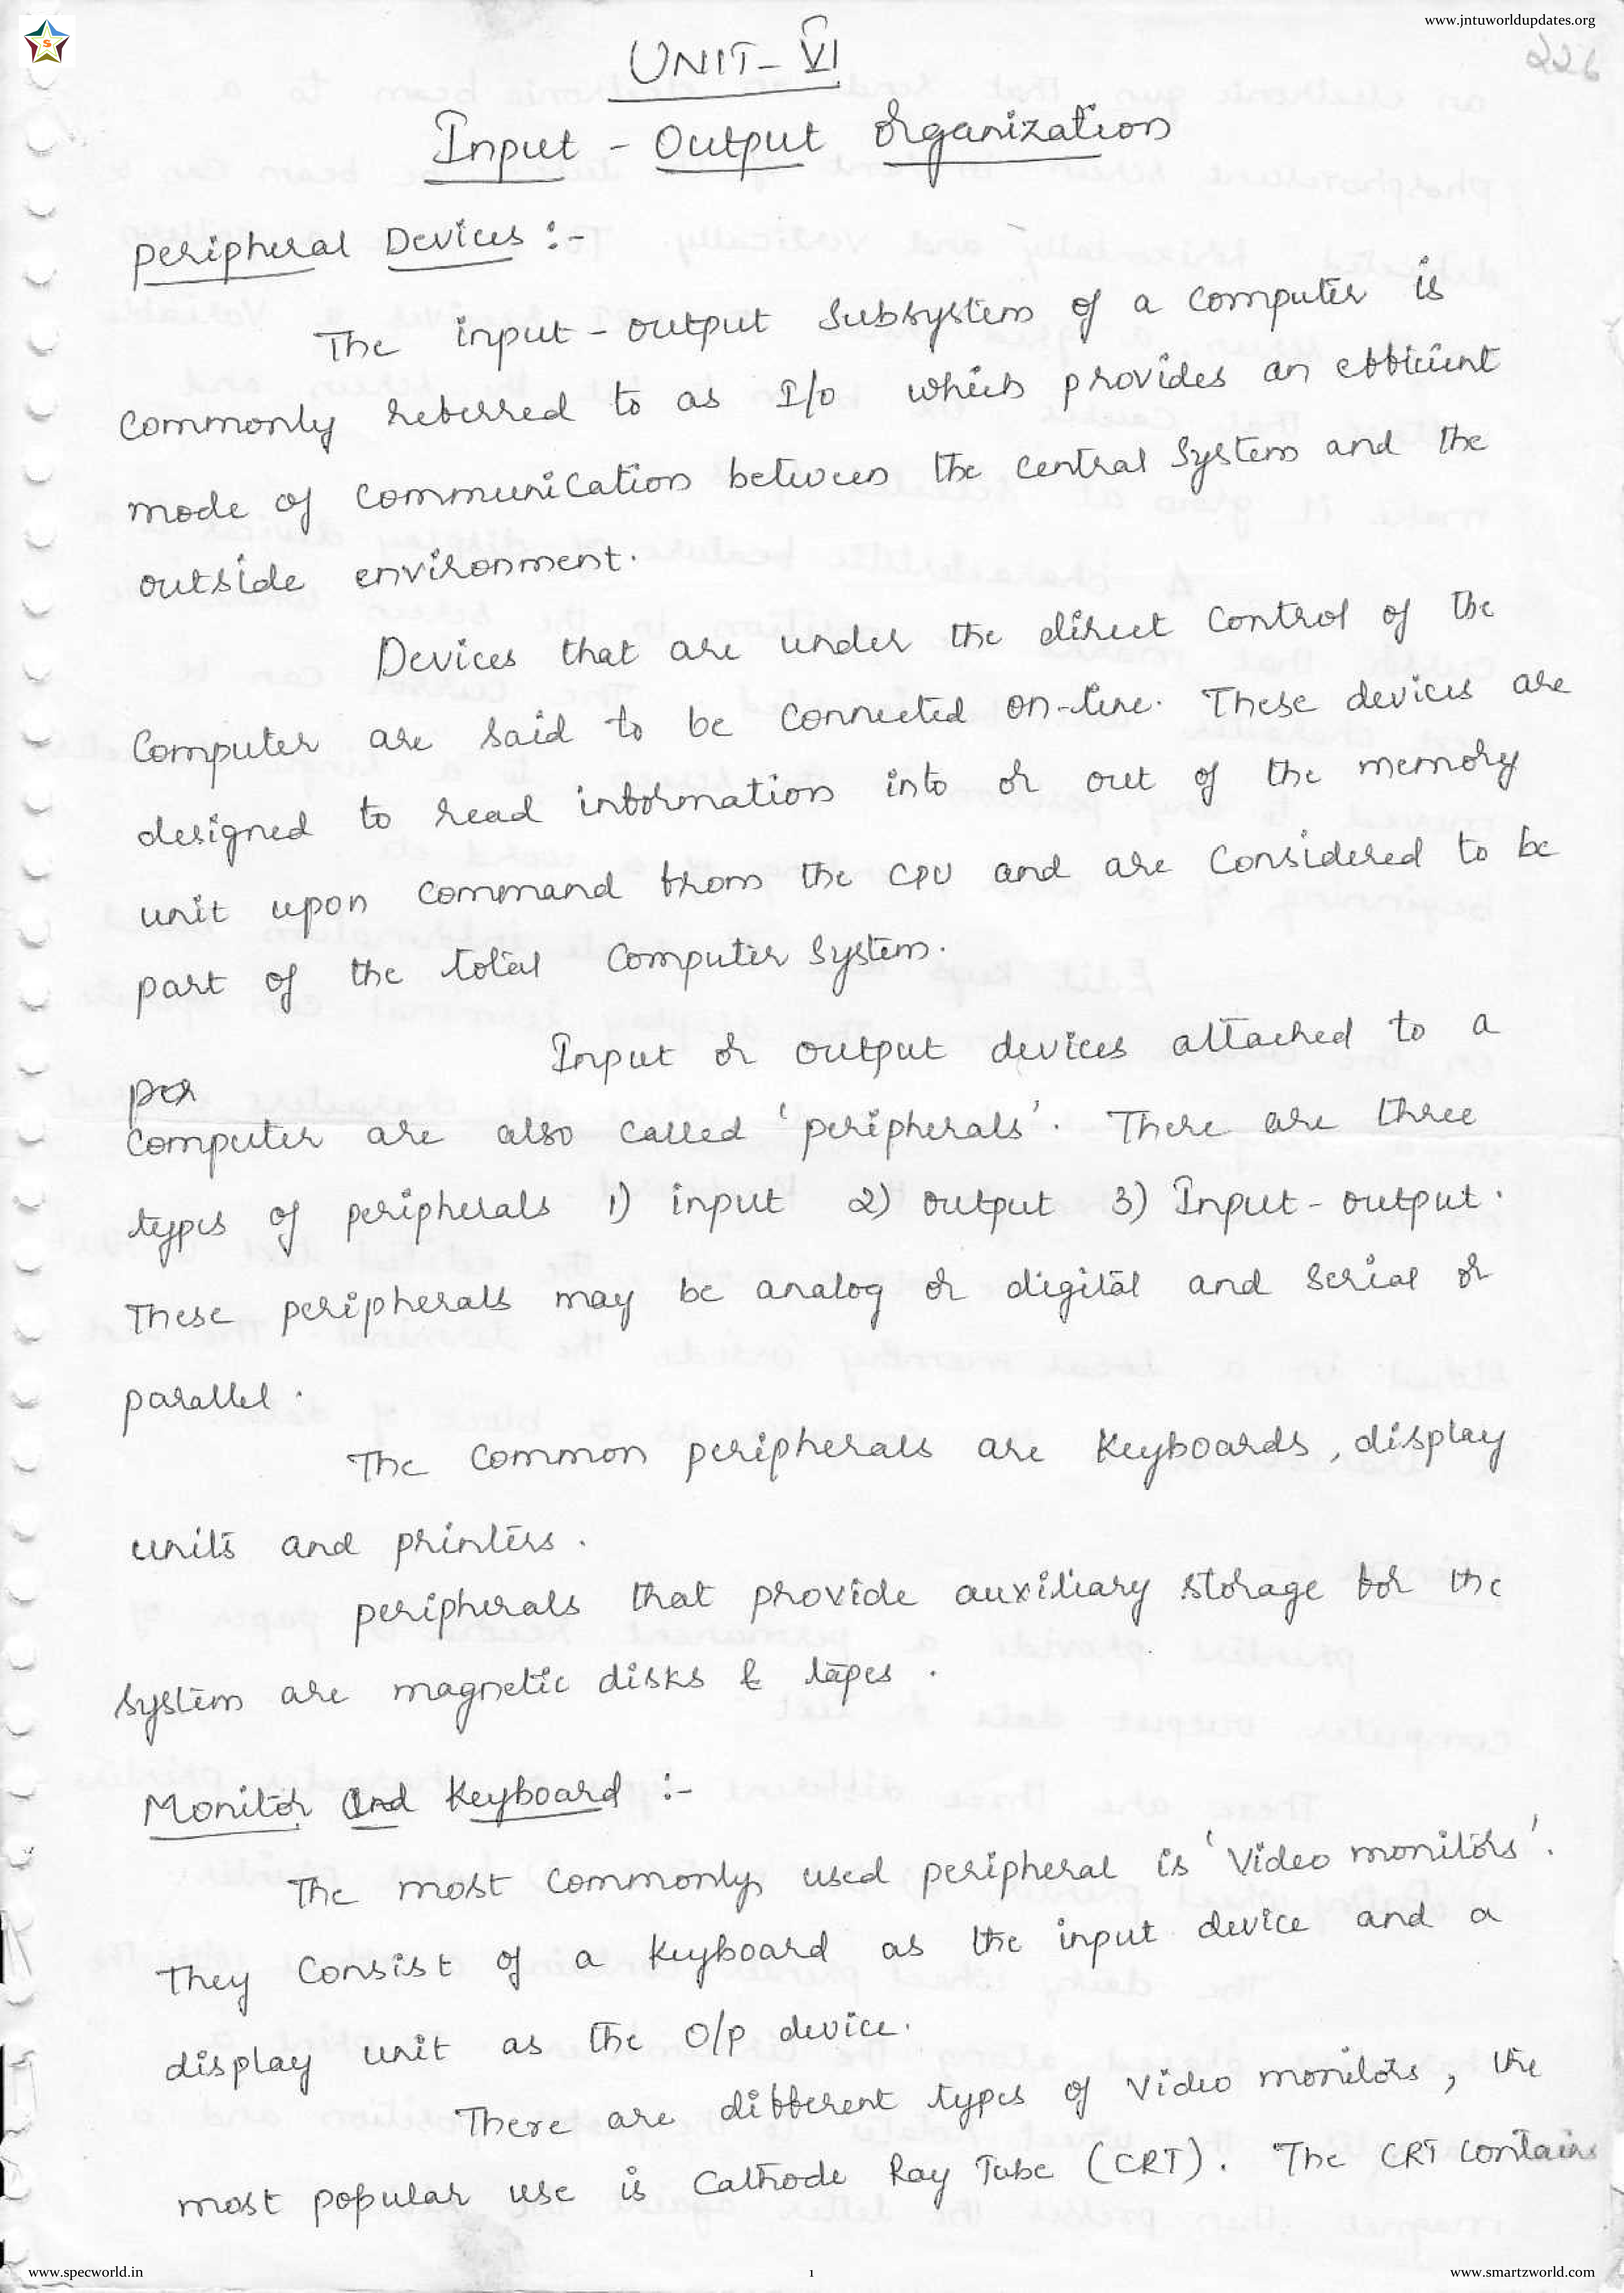 www.jntuworldupdates.org
S
226
UNIT - VI
Input - Output Organization
Peripheral Devices :-
The input - output Subsystem of a computer is
commonly referred to as I/o which provides an efficient
mode of communication between the central System and the
outside environment.
Devices that are under the direct control of the
Computer are said to be connected on-line. These devices are
designed to read information into or out of the memory
unit upon command from the CPU and are considered to be
part of the total Computer System.
Input or output devices attached to a
per
Computer are also called 'peripherals'. There are three
types of peripherals 1) input 2) output 3) Input - output.
These peripherals may be analog or digital and serial or
parallel.
The common peripherals are Keyboards, display
units and printers.
peripherals that provide auxiliary storage for the
system are magnetic disks & tapes.
Monitor And Keyboard :-
The most commonly used peripheral is 'Video monitors'.
They consist of a Keyboard as the input device and a
display unit as the O/p device.
There are different types of Video monitors, the
most popular use is Cathode Ray Tube (CRT). The CRT contains
www.specworld.in
1
www.smartzworld.com